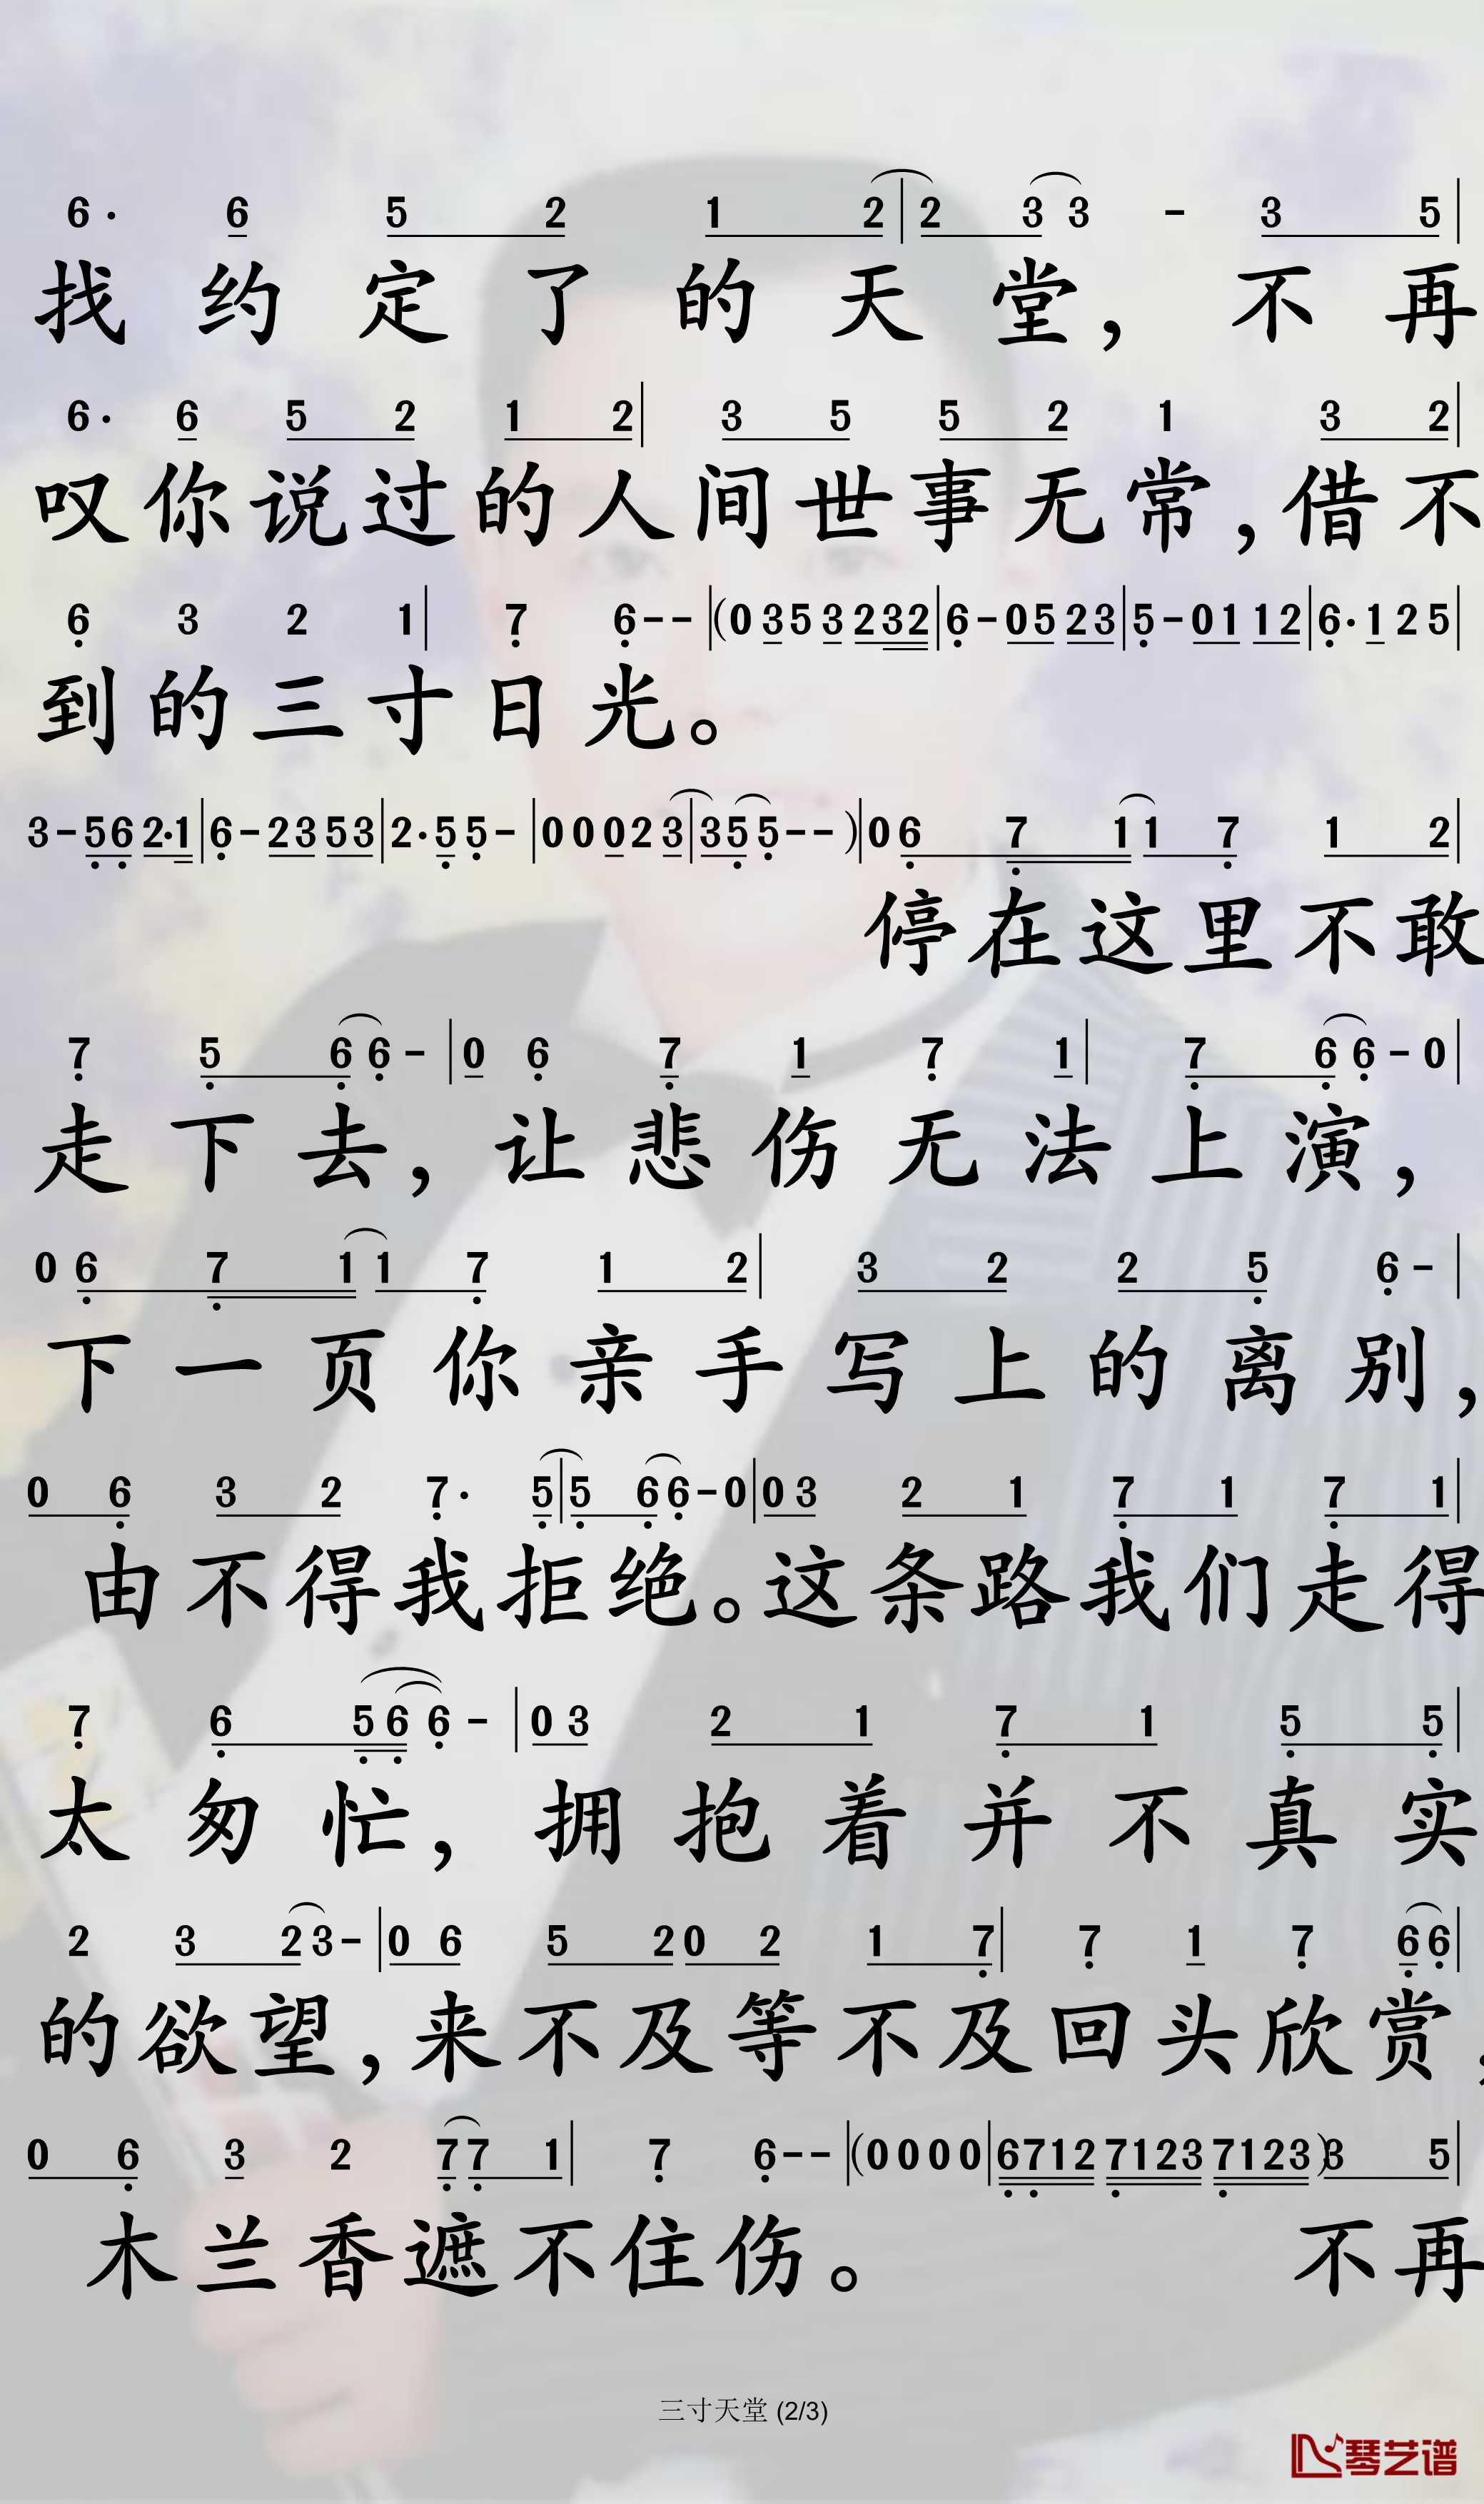 6· 6 5 2 1 2|2 3 3 - 3 5|
找约定了的天堂，不再
6· 6 5 2 1 2| 3 5 5 2 1 3 2|
叹你说过的人间世事无常，借不
6 3 2 1| 7 6--|(0 35 3 232|6-05 23|5-01 12|6·1 2 5|
到的三寸日光。
3-56 2·1|6-23 53|2·5 5-|0 0 0 2 3|35 5--)|0 6 7 1 1 7 1 2|
停在这里不敢
7 5 6 6 -|0 6 7 1 7 1| 7 6 6 - 0|
走下去，让悲伤无法上演，
0 6 7 1 1 7 1 2| 3 2 2 5 6 -|
下一页你亲手写上的离别，
0 6 3 2 7· 5|5 6 6 - 0|0 3 2 1 7 1 7 1|
由不得我拒绝。这条路我们走得
7 6 5 6 6 - |0 3 2 1 7 1 5 5|
太匆忙，拥抱着并不真实
2 3 2 3 -|0 6 5 2 0 2 1 7| 7 1 7 6 6|
的欲望，来不及等不及回头欣赏，
0 6 3 2 7 7 1| 7 6--|(0 0 0 0|6712 7123 7123)3 5|
木兰香遮不住伤。不再
三寸天堂 (2/3)
琴艺谱